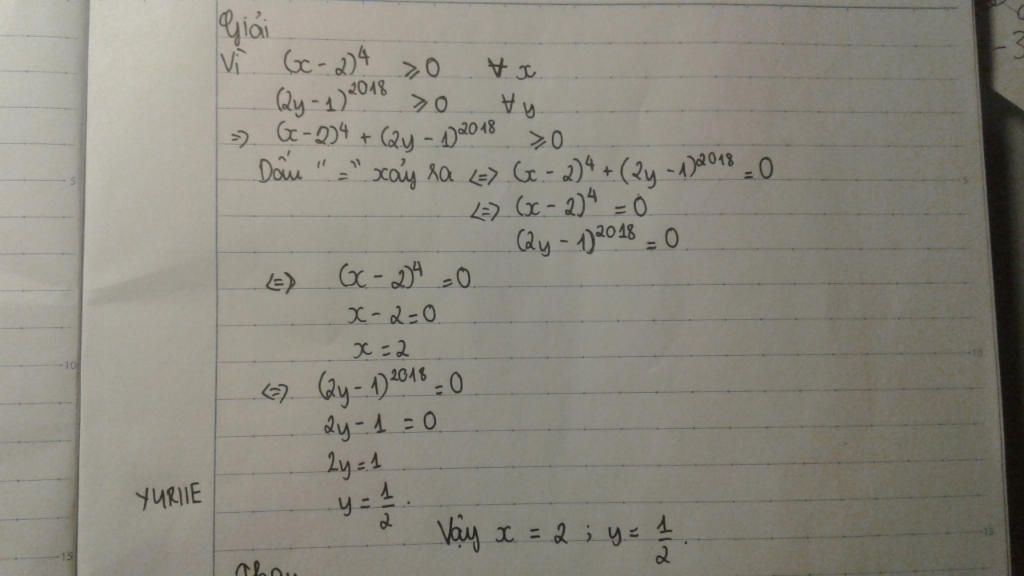 Giải
Vì (x - 2)⁴ ⩾ 0 ∀ x
(2y - 1)²⁰¹⁸ ⩾ 0 ∀ y
=> (x - 2)⁴ + (2y - 1)²⁰¹⁸ ⩾ 0
Dấu " = " xảy ra <=> (x - 2)⁴ + (2y - 1)²⁰¹⁸ = 0
<=> (x - 2)⁴ = 0
(2y - 1)²⁰¹⁸ = 0
<=> (x - 2)⁴ = 0
x - 2 = 0
x = 2
<=> (2y - 1)²⁰¹⁸ = 0
2y - 1 = 0
2y = 1
YURIIE
y = 1/2.
Vậy x = 2 ; y = 1/2.